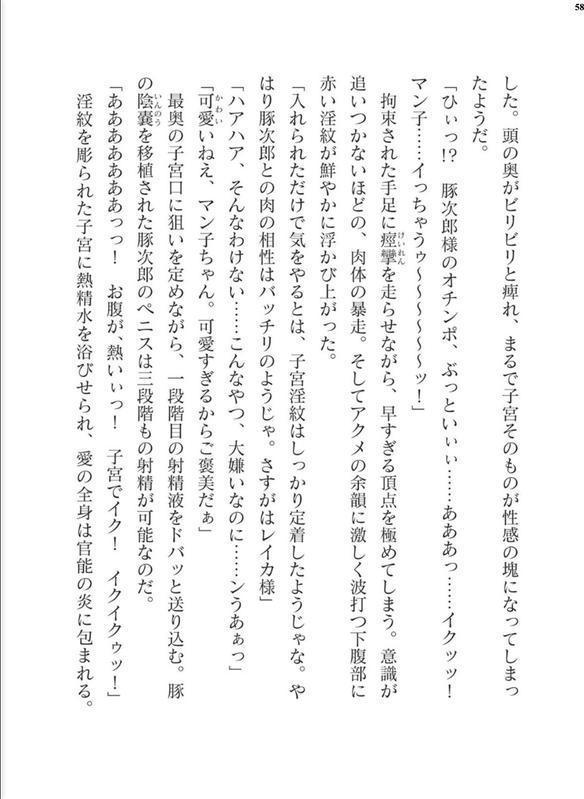 58
した。頭の奥がビリビリと痺れ、まるで子宮そのものが性感の塊になってしまっ
たようだ。
「ひぃっ!?　豚次郎様のオチンポ、ぶっといぃぃ……あああっ……イクッッ！
マン子……イっちゃうゥ～～～～～～ッ！」
　拘束された手足に痙攣を走らせながら、早すぎる頂点を極めてしまう。意識が
追いつかないほどの、肉体の暴走。そしてアクメの余韻に激しく波打つ下腹部に
赤い淫紋が鮮やかに浮かび上がった。
「入れられただけで気をやるとは、子宮淫紋はしっかり定着したようじゃな。や
はり豚次郎との肉の相性はバッチリのようじゃ。さすがはレイカ様」
「ハアハア、そんなわけない……こんなやつ、大嫌いなのに……ンうあぁっ」
「可愛いねえ、マン子ちゃん。可愛すぎるからご褒美だぁ」
　最奥の子宮口に狙いを定めながら、一段階目の射精液をドバッと送り込む。豚
の陰嚢を移植された豚次郎のペニスは三段階もの射精が可能なのだ。
「あああああああっっ！　お腹が、熱いぃっ！　子宮でイク！　イクイクゥッ！」
　淫紋を彫られた子宮に熱精水を浴びせられ、愛の全身は官能の炎に包まれる。